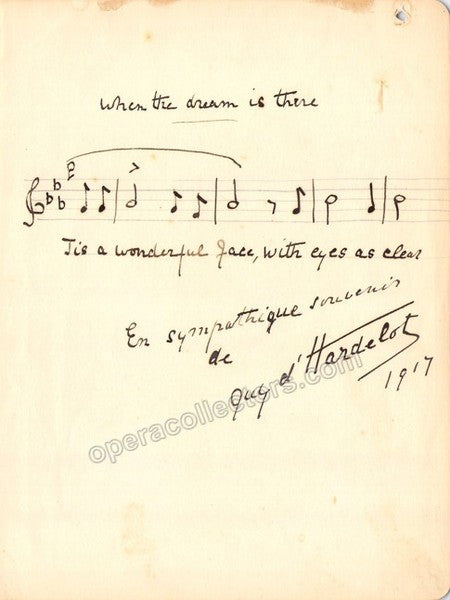 When the dream is there
p
Tis a wonderful face, with eyes as clear
En sympathique souvenir
de
Guy d'Hardelot
1917
operacollectors.com